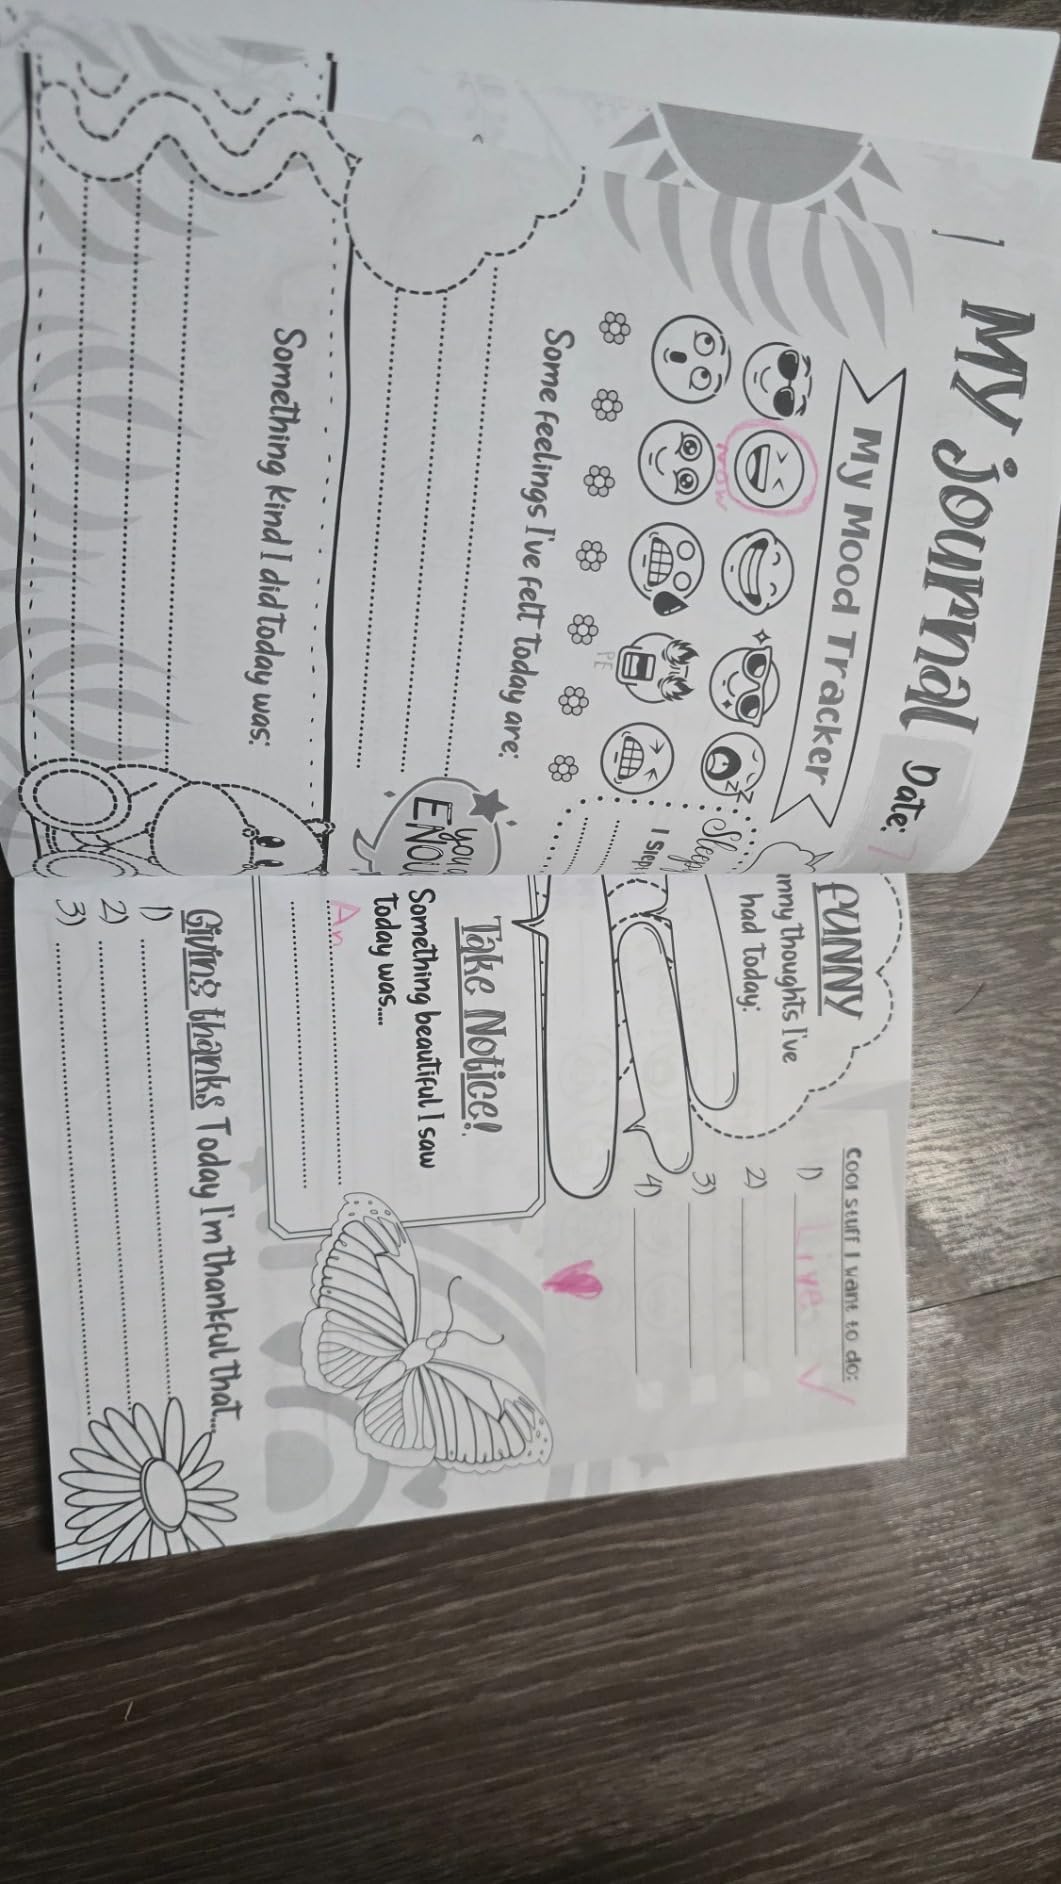 My Journal Date: 7
My Mood Tracker
NOW
PE
Sleepy
I
Some feelings I've felt today are:
YOU
Something kind I did today was:
FUNNY
thoughts I've
had today:
Cool stuff I want to do:
1) Live ✓
2)
3)
4)
Take Notice!
Something beautiful I saw
today was....
An
Giving thanks Today I'm thankful that...
1)
2)
3)